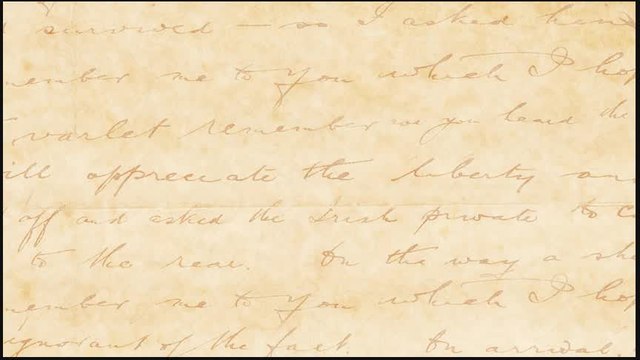 survived — so I asked him
member me to you which I hop
varlet remember me you heard the
ill appreciate the liberty an
off and asked the Irish private to c
to the rear. On the way a she
member me to you which I hop
ignorant of the fact. On arrival